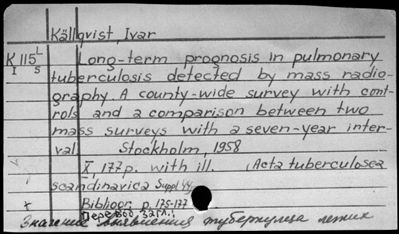 Källqvist, Ivar
K 115 L
I S
Long-term prognosis in pulmonary
tuberculosis detected by mass radio-
graphy. A county-wide survey with cont-
rols and a comparison between two
mass surveys with a seven-year inter-
val Stockholm, 1958
X, 177 p. with ill. (Acta tuberculosea
scandinavica Suppl 44
Bibliogr. p. 175-177
Перевод загл.:
Значение выявления туберкулеза легких